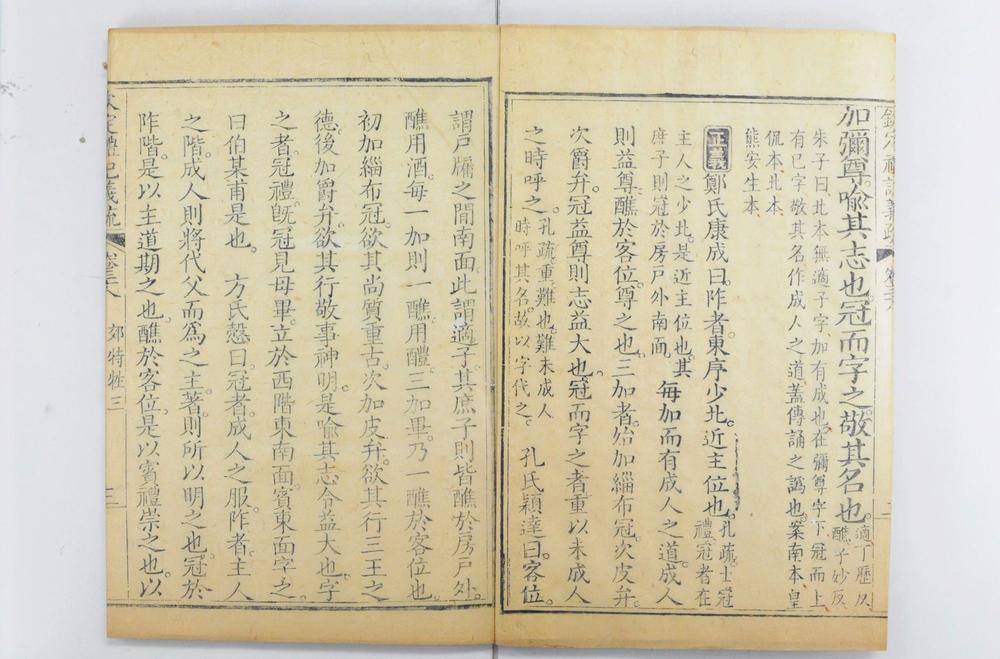 欽定禮記義疏 卷三十八
加彌尊喻其志也冠而字之敬其名也適丁歷反醮子妙反
朱子曰北本無適子字加有成也在彌尊字下冠而上
有已字敬其名作成人之道蓋傳誦之譌也案南本皇
侃本北本
熊安生本
正義 鄭氏康成曰阼者東序少北近主位也孔疏士冠禮冠者在
主人之少北是近主位也其庶子則冠於房戶外南面 每加而有成人之道成人
則益尊醮於客位尊之也三加者始加緇布冠次皮弁
次爵弁冠益尊則志益大也冠而字之者重以未成人
之時呼之孔疏重難也難未成人時呼其名故以字代之 孔氏穎達曰客位
謂戶牖之閒南面此謂適子其庶子則皆醮於房戶外
醮用酒每一加則一醮用醴三加畢乃一醮於客位也
初加緇布冠欲其尚質重古次加皮弁欲其行三王之
德後加爵弁欲其行敬事神明是喻其志令益大也字
之者冠禮旣冠見母畢立於西階東南面賓東面字之
曰伯某甫是也 方氏慤曰冠者成人之服阼者主人
之階成人則將代父而爲之主著則所以明之也冠於
阼階是以主道期之也醮於客位是以賓禮崇之也以
欽定禮記義疏 卷三十八 郊特牲三 三